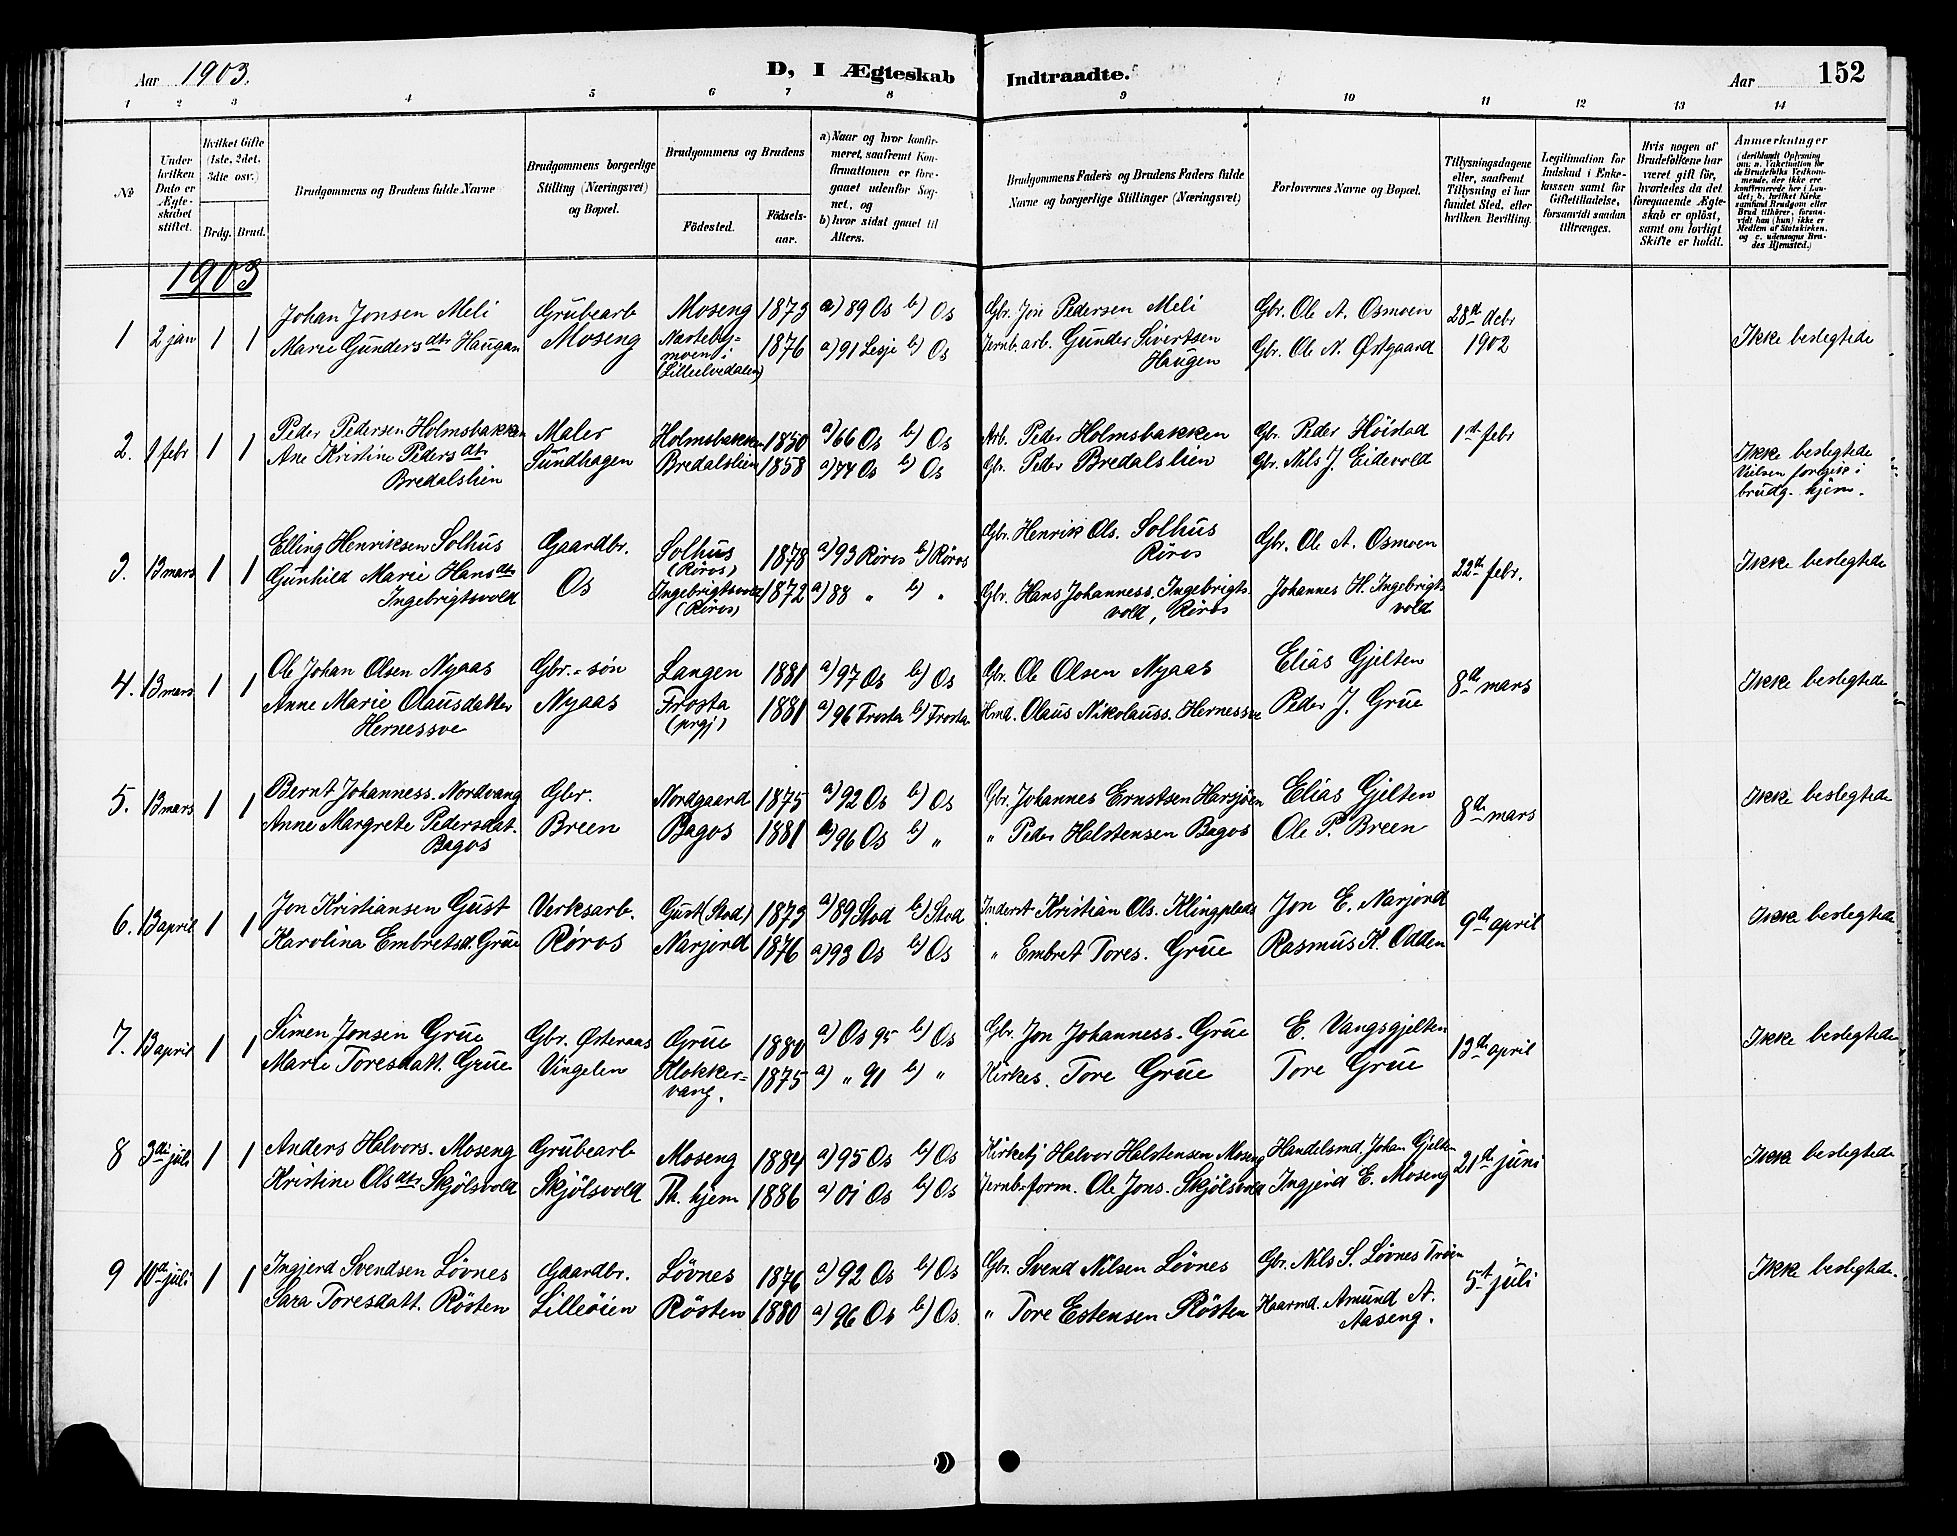 Aar 1903.
D, I Ægteskab Indtraadte.
Aar 152
1 2 3 4 5 6 7 8 9 10 11 12 13 14
№
Under hvilken Dato er Ægteskabet stiftet.
Hvilket Gifte (1ste, 2det, 3dte osv.)
Brdg. Brud.
Brudgommens og Brudens fulde Navne
Brudgommens borgerlige Stilling (Næringsvei) og Bopæl.
Brudgommens og Brudens
Fødested.
Fødselsaar.
a) Naar og hvor konfirmeret, saafremt Konfirmationen er foregaaet udenfor Sognet, og
b) hvor sidst gaaet til Alters.
Brudgommens Faders og Brudens Faders fulde Navne og borgerlige Stillinger (Næringsvei)
Forlovernes Navne og Bopæl.
Tillysningsdagene eller, saafremt Tillysning ei har fundet Sted, efter hvilken Bevilling.
Legitimation for Indskud i Enkekassen samt for Giftetilladelse, forsaavidt saadan tiltrænges.
Hvis nogen af Brudefolkene har været gift før, hvorledes da det foregaaende Ægteskab er opløst, samt om lovligt Skifte er holdt.
Anmærkninger
(deriblandt Oplysning om: a. Vakcination for de Brudefolks Vedkommende, der ikke ere konfirmerede her i Landet; b. hvilket Kirkesamfund Brudgom eller Brud tilhører, forsaavidt han (hun) ikke er Medlem af Statskirken, og c. udensogns Brudes Hjemsted.)
1903
1 2 jan 1 1 Johan Jonsen Meli Grubearb Moseng 1873 a) 89 Os b) Os Gbr. Jon Pedersen Meli Gbr. Ole A. Osmoen 28d debr
Marie Gundersdtr Haugan Moseng Nørteby- 1876 a) 91 Lesje b) Os Jernb.arb. Gunder Sivertsen Gbr. Ole N. Østgaard 1902 Ikke beslegtede
moen i Haugen
(Lilleelvedalen)
2. 1 febr 1 1 Peder Pedersen Holmsbakken Maler Holmsbakken 1850 a) 66 Os b) Os Arb. Peder Holmsbakken Gbr. Peder Höistad 1st febr
Ane Kristine Pedersdtr Sundhagen Bredalslien 1858 a) 74 Os b) Os Gbr. Peder Bredalslien Gbr. Nils J. Eidevold Ikke beslegtede
Bredalslien Vielsen foregik i
brudg. hjem.
3. 13 mars 1 1 Elling Henriksen Solhus Gaardbr. Solhus 1878 a) 93 Røros b) Røros Gbr. Henrik Ols. Solhus Gbr. Ole A. Osmoen
(Røros) Røros
Gunhild Marie Hansdtr Os Ingebrigtsvold 1872 a) 88 " b) " Gbr. Hans Johanness. Ingebrigts- Johannes H. Ingebrigts- 22th febr. Ikke beslegtede
Ingebrigtsvold (Røros) vold, Røros vold
4. 13 mars 1 1 Ole Johan Olsen Nyaas Gbr.-søn Langen 1881 a) 97 Os b) Os Gbr. Ole Olsen Nyaas Elias Gjelten
Anne Marie Olausdatter Nyaas Frosta 1881 a) 96 Frosta b) Frosta Hmd. Olaus Nikolauss. Hernessve Peder J. Grue 8d mars Ikke beslegtede
Hernessve (prgj)
5. 13 mars 1 1 Bernt Johanness. Nordvang Gbr. Nordgaard 1875 a) 92 Os b) Os Gbr. Johannes Ernstsen Harsjöen Elias Gjelten
Anne Margrete Pedersdat. Breen Bagos 1881 a) 96 Os b) " " Peder Halstensen Bagos Ole P. Breen 8d mars Ikke beslegtede
Bagos
6. 13 april 1 1 Jon Kristiansen Gust Verksarb. Gust (Stod) 1873 a) 89 Stod b) Stod Inderst Kristian Ols. Klingplads Jon E. Narjord
Karolina Embretsd. Grue Røros Narjord 1876 a) 93 Os b) Os " Embret Tores. Grue Rasmus K. Odden 9d april Ikke beslegtede
7. 13 april 1 1 Simen Jonsen Grue Gbr. Østeraas Grue 1880 a) Os 95 b) Os Gbr. Jon Johanness. Grue E. Vangsgjelten
Marie Toresdatt. Grue Vingelen Klokker- 1875 a) " 91 b) " Kirkes. Tore Grue Tore Grue 13d april Ikke beslegtede
vang.
8 3di juli 1 1 Anders Halvors. Moseng Grubearb Moseng 1884 a) 95 Os b) Os Kirketj Halvor Halstensen Moseng Handelsmd. Johan Gjelten
Kristine Olsdtr Skjölsvold Skjölsvold Th. hjem 1886 a) 01 Os b) Os Jernb-form. Ole Jons. Skjölsvold Ingjerd E. Moseng 21d juni Ikke beslegtede
9 10d juli 1 1 Ingjerd Svendsen Lövnes Gaardbr. Lövnes 1876 a) 92 Os b) Os Gbr. Svend Nilsen Lövnes Gbr. Nils S. Lövnes Tröen
Sara Toresdatt. Rösten Lilleöien Rösten 1880 a) 96 Os b) Os. " Tore Estensen Rösten Haarmd. Amund A. 5t juli Ikke beslegtede.
Aaseng.